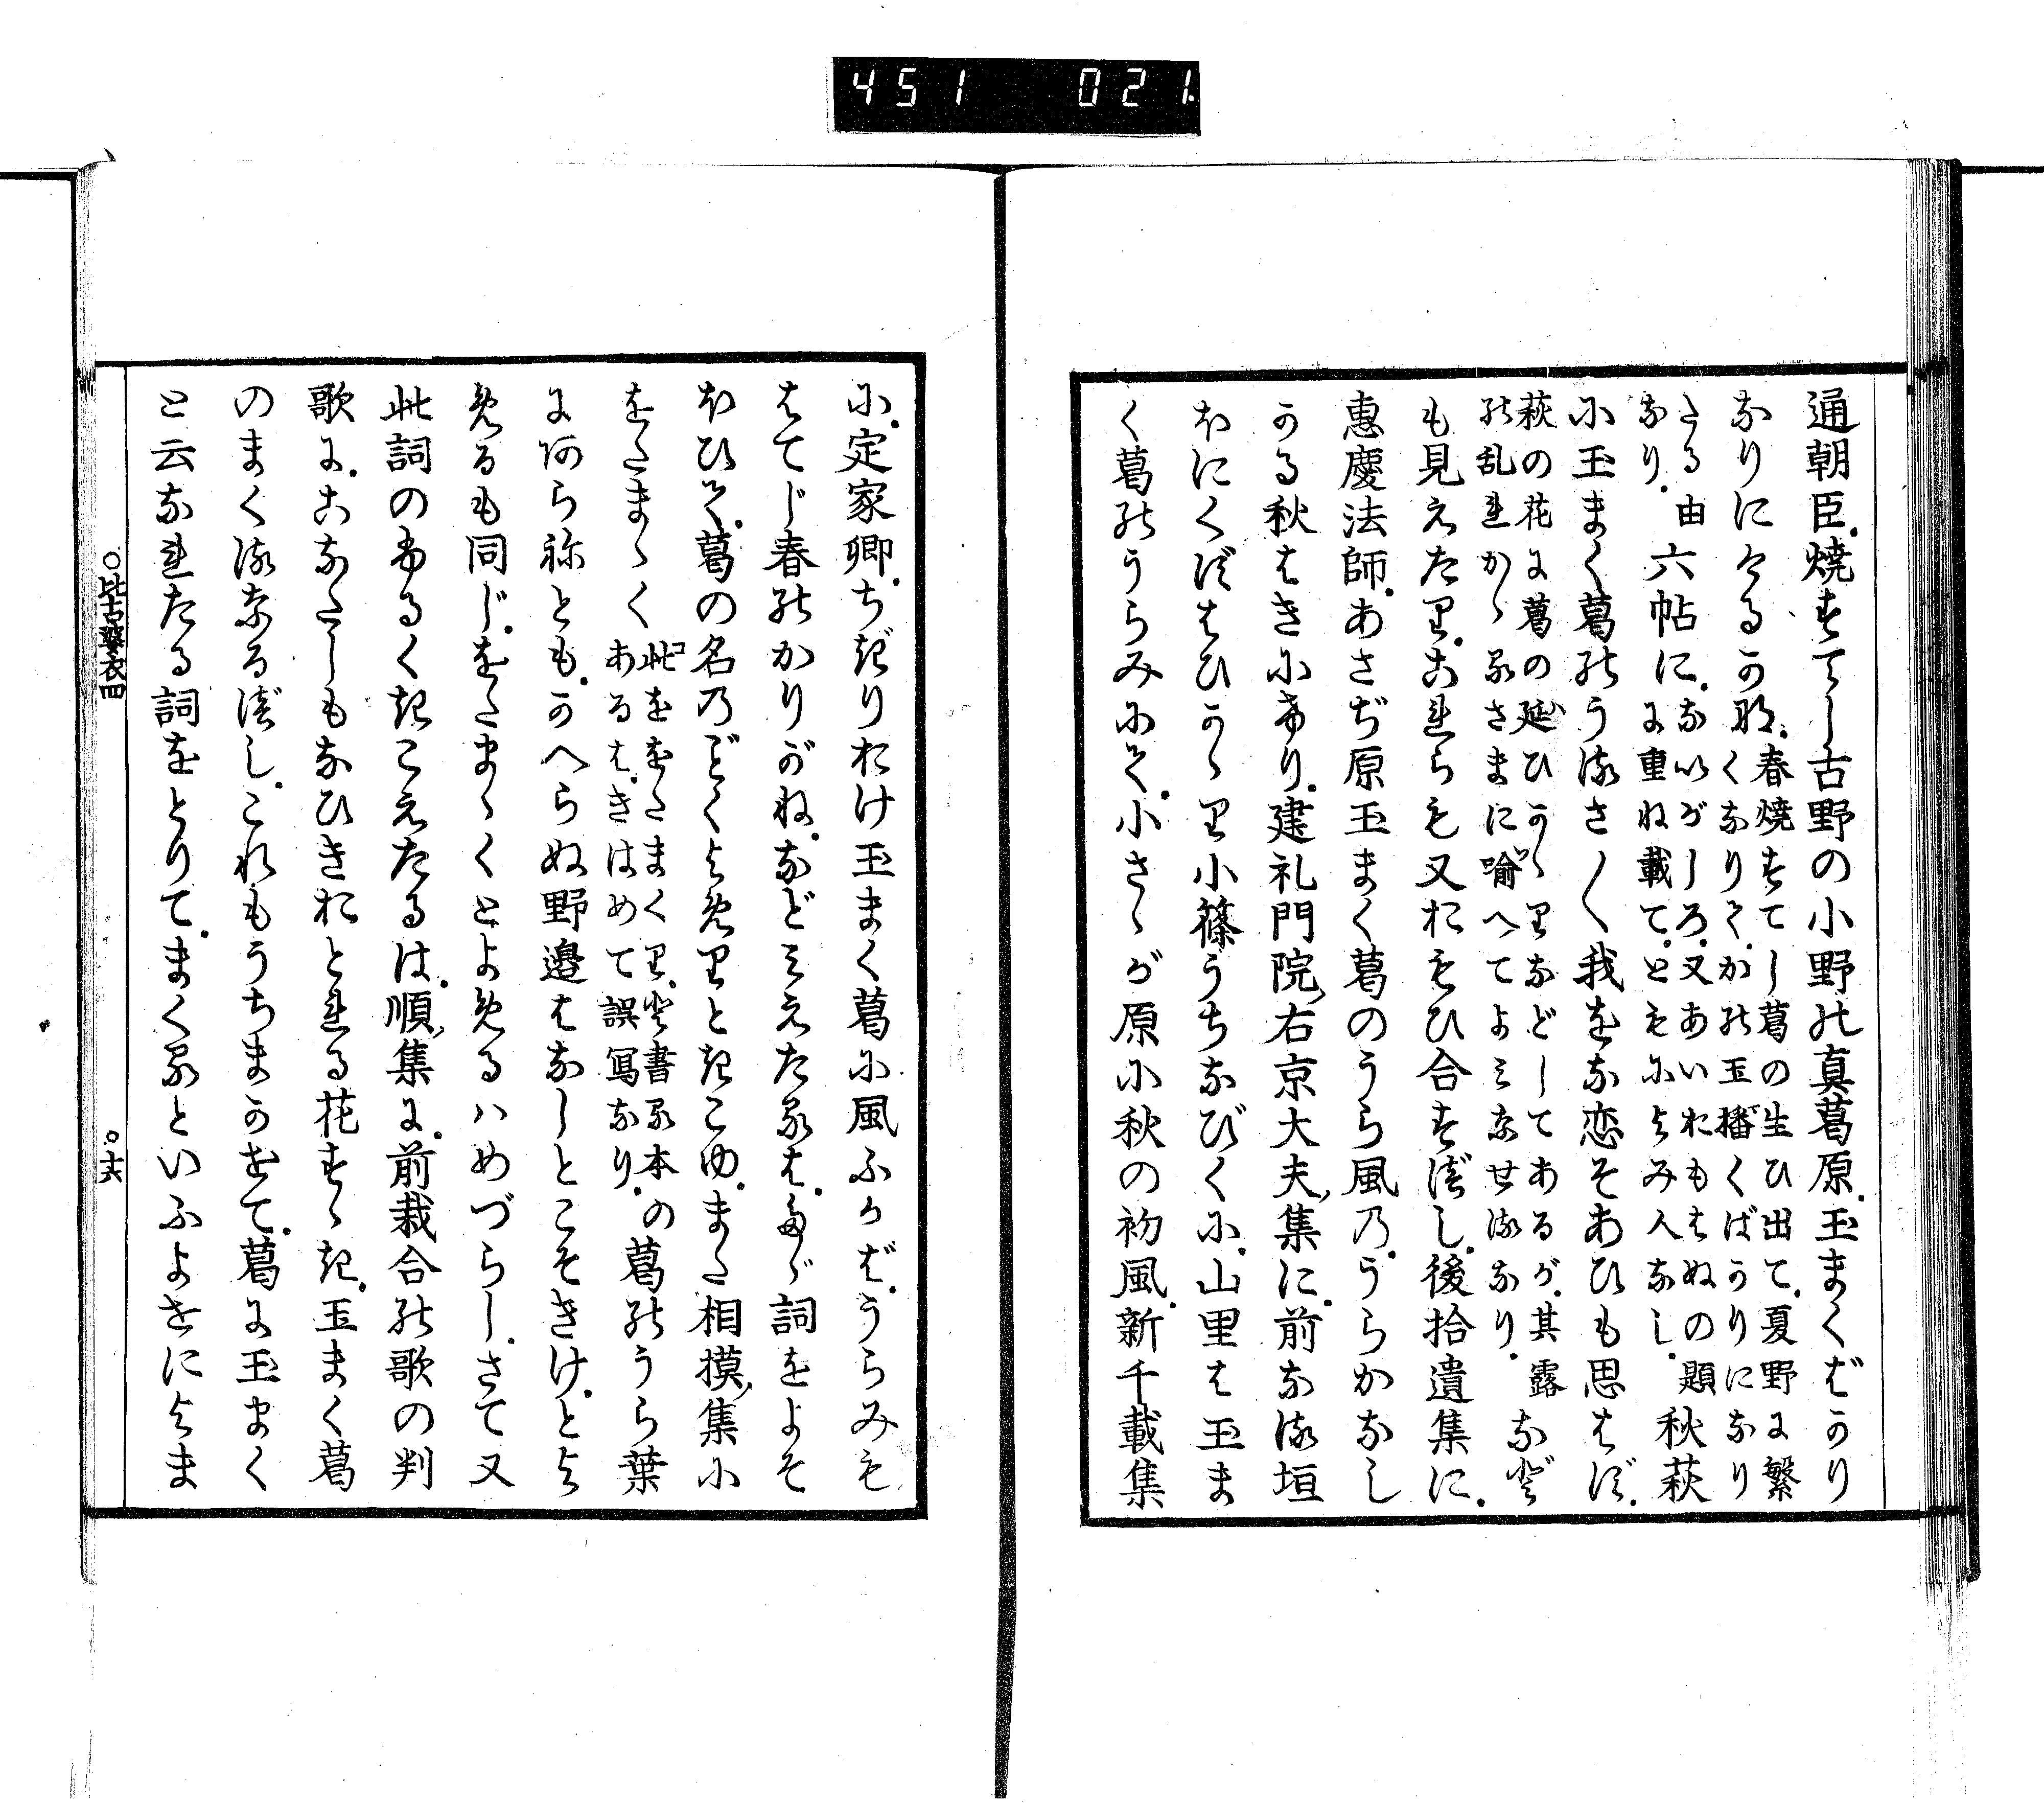 451 021.
通朝臣、焼すてし古野の小野の真葛原、玉まくばかり
なりにけるかな、春焼すてし葛の生ひ出て、夏野に繁
くなりて、かの玉播くばかりになり
たる由
なり、六帖に、ないがしろ、又あいおもはぬの題
に重ね載て、ともによみ人なし、秋萩
に玉まく葛のうるさ〱我をな恋そあひも思はず、
萩の花に葛の延ひかゝりなどしてあるが、其露
の乱れかゝるさまに喩へてよみなせるなり、など
も見えたり、これらも又おもひ合すべし、後拾遺集に、
恵慶法師、あさぢ原玉まく葛のうら風の、うらかなし
かる秋はきにけり、建礼門院右京大夫集に、前なる垣
ほにくずはひかゝり小篠うちなびくに、山里は玉ま
く葛のうらみにて、小さゝが原に秋の初風、新千載集
に、定家卿、ちぎりおけ玉まく葛に風ふかば、うらみも
はてじ春のかりがね、などみえたるは、たゞ詞をよそ
ほひて、葛の名のごとくよめりときこゆ、また相摸集に
をたまゝく 此ををたまくり、と書る本の
あるは、きはめて誤写なり、葛のうら葉
にあらねとも、かへらぬ野邉はなしとこそきけ、とよ
めるも同じ、をたまゝくとよめるハめづらし、さて又
此詞のふるくきこえたるは、順集に、前栽合の歌の判
歌に、こなたしもなひきおとれる花すゝき、玉まく葛
のまくるなるべし、これもうちまかせて、葛に玉まく
と云なれたる詞をとりて、まくるといふよせによま
○比古婆衣四
○十六